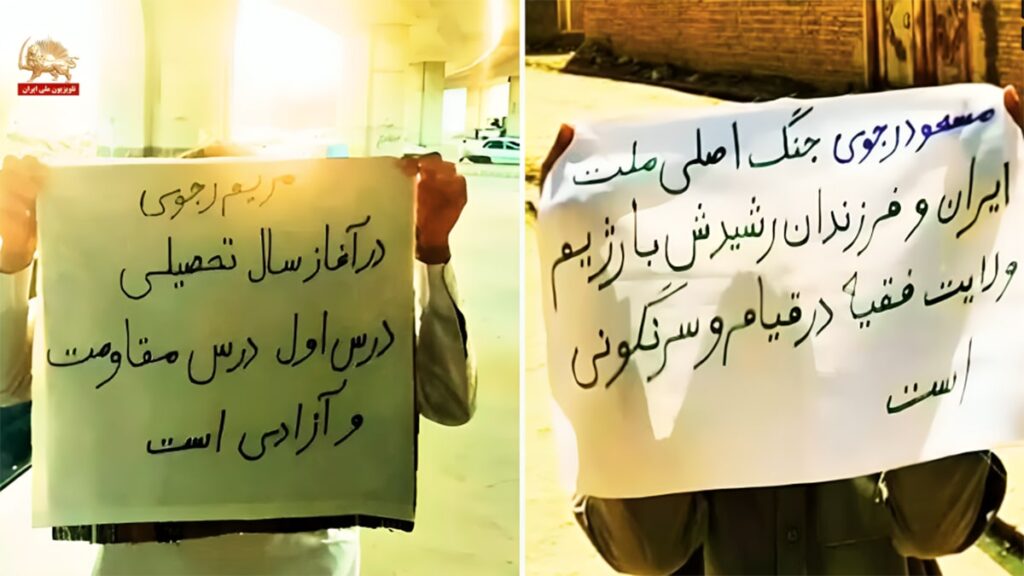 تلویزیون ملی ایران
مریم رجوی
درآغاز سال تحصیلی
درس اول درس مقاومت
و آزادی است
مسعود رجوی جنگ اصلی ملت
ایران و فرزندان رشیدش با رژیم
ولایت فقیه در قیام و سرنگونی
است